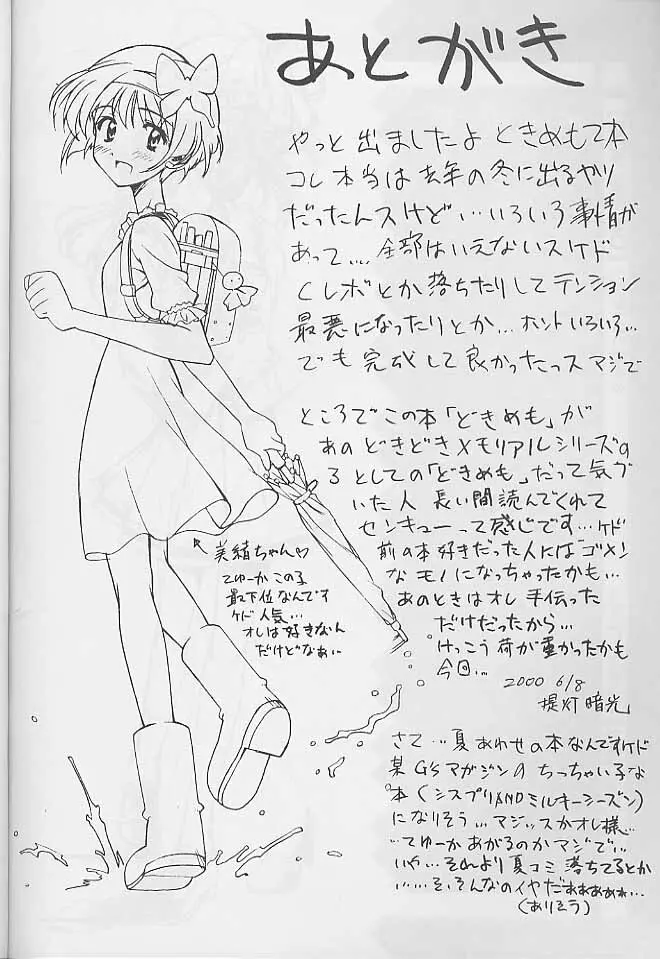 あとがき
やっと出ましたよ ときめもて本
コレ本当は去年の冬に出るやり
だったんスけど…いろいろ事情が
あって…。全部はいえないスケド
Cレボとか落ちたりしてテンション
最悪になったりとか…ホントいろいろ…
でも完成して良かったっスマジで
ところでこの本「どきめも」が
あのどきどきメモリアルシリーズの
3としての「どきめも」だって気づ
いた人 長い間読んでくれて
センキューって感じです…ケド
前の本好きだった人にはゴメン
なモノになっちゃったかも…
あのときはオレ手伝った
だけだったから…
けっこう荷が重かったかも
今回…
2000 6/8
提灯暗光
美緒ちゃん♡
てゆーかこの子
最下位なんです
ケド人気…
オレは好きなん
だけどなぁ…
さて…夏あわせの本なんですケド
某G'sマガジンのちっちゃい子な
本(シスプリANDミルキーシーズン)
になりそう…マジッスかオレ様…
…てゆーかあがるのかマジで…
いや…それより夏コミ落ちてるとか
……そ、そんなのイヤだぁぁぁぁぁ…
(ありそう)